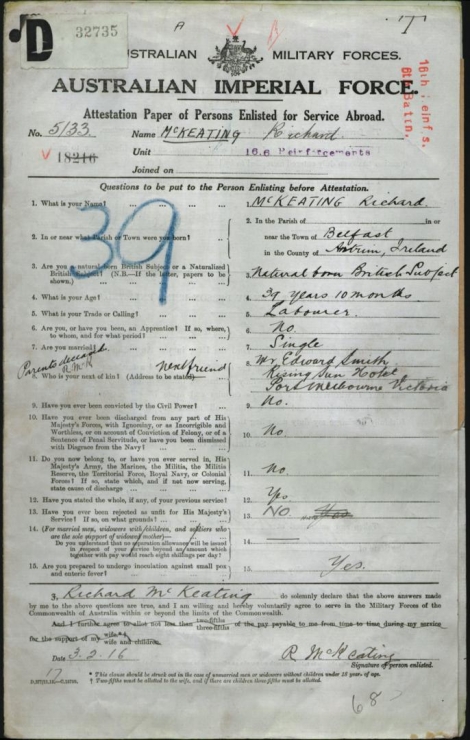 D 32735
A
T
AUSTRALIAN MILITARY FORCES.
AUSTRALIAN IMPERIAL FORCE.
16th Reinfs.
6th Battn.
Attestation Paper of Persons Enlisted for Service Abroad.
No. 5133 Name McKEATING Richard
18216 Unit 16.6 Reinforcements
Joined on
Questions to be put to the Person Enlisting before Attestation.
39
1. What is your Name? 1. McKEATING Richard
2. In or near what Parish or Town were you born? 2. In the Parish of in or
near the Town of Belfast
in the County of Antrim, Ireland
3. Are you a natural born British Subject or a Naturalised
British Subject? (N.B.—If the latter, papers to be
shown.) 3. Natural born British Subject
4. What is your Age? 4. 37 years 10 months
5. What is your Trade or Calling? 5. Labourer.
6. Are you, or have you been, an Apprentice? If so, where,
to whom, and for what period? 6. No.
7. Are you married? 7. Single
Parents deceased
R. McK
Who is your next of kin? (Address to be stated) next friend 8. Mr Edward Smith
Rising Sun Hotel
Port Melbourne Victoria
9. Have you ever been convicted by the Civil Power? 9. No.
10. Have you ever been discharged from any part of His
Majesty's Forces, with Ignominy, or as Incorrigible and
Worthless, or on account of Conviction of Felony, or of a
Sentence of Penal Servitude, or have you been dismissed
with Disgrace from the Navy? 10. No.
11. Do you now belong to, or have you ever served in, His
Majesty's Army, the Marines, the Militia, the Militia
Reserve, the Territorial Force, Royal Navy, or Colonial
Forces? If so, state which, and if not now serving,
state cause of discharge 11. No
12. Have you stated the whole, if any, of your previous service? 12. Yes
13. Have you ever been rejected as unfit for His Majesty's
Service? If so, on what grounds? 13. NO
14. (For married men, widowers with children, and soldiers who
are the sole support of widowed mother)—
Do you understand that no separation allowance will be issued
in respect of your service beyond an amount which
together with pay would reach eight shillings per day? 14. —
15. Are you prepared to undergo inoculation against small pox
and enteric fever? 15. Yes.
I, Richard McKeating do solemnly declare that the above answers made
by me to the above questions are true, and I am willing and hereby voluntarily agree to serve in the Military Forces of the
Commonwealth of Australia within or beyond the limits of the Commonwealth.
And I further agree to allot not less than two-fifths three-fifths of the pay payable to me from time to time during my service
for the support of my wife wife and children.
Date 3.2.16 R McKeating
Signature of person enlisted.
* This clause should be struck out in the case of unmarried men or widowers without children under 18 year of age.
† Two-fifths must be allotted to the wife, and if there are children three-fifths must be allotted.
17
68